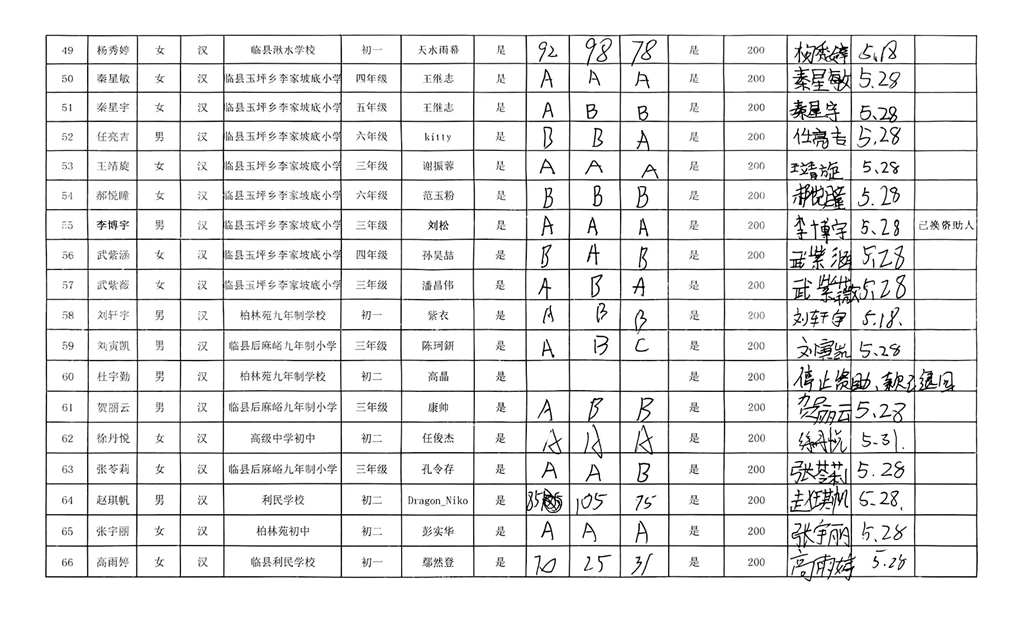 49 杨秀婷 女 汉 临县湫水学校 初一 天水雨幕 是 92 98 78 是 200 杨秀婷 5.18
50 秦星敏 女 汉 临县玉坪乡李家坡底小学 四年级 王继志 是 A A A 是 200 秦星敏 5.28
51 秦星宇 女 汉 临县玉坪乡李家坡底小学 五年级 王继志 是 A B B 是 200 秦星宇 5.28
52 任亮吉 男 汉 临县玉坪乡李家坡底小学 六年级 kitty 是 B B A 是 200 任亮吉 5.28
53 王靖旋 女 汉 临县玉坪乡李家坡底小学 三年级 谢振蓉 是 A A A 是 200 王靖旋 5.28
54 郝悦瞳 女 汉 临县玉坪乡李家坡底小学 六年级 范玉粉 是 B B B 是 200 郝悦瞳 5.28
55 李博宇 男 汉 临县玉坪乡李家坡底小学 三年级 刘松 是 A A A 是 200 李博宇 5.28 已换资助人
56 武紫涵 女 汉 临县玉坪乡李家坡底小学 四年级 孙昊喆 是 B A B 是 200 武紫涵 5.28
57 武紫薇 女 汉 临县玉坪乡李家坡底小学 三年级 潘昌伟 是 A B A 是 200 武紫薇 5.28
58 刘轩宇 男 汉 柏林苑九年制学校 初一 紫衣 是 A B B 是 200 刘轩宇 5.18.
59 刘寅凯 男 汉 临县后麻峪九年制小学 三年级 陈珂鈃 是 A B C 是 200 刘寅凯 5.28
60 杜宇勤 男 汉 柏林苑九年制学校 初二 高晶 是 是 200 停止资助、款已退回
61 贺丽云 男 汉 临县后麻峪九年制小学 三年级 康帅 是 A B B 是 200 贺丽云 5.28
62 徐丹悦 女 汉 高级中学初中 初二 任俊杰 是 A A A 是 200 徐丹悦 5.31.
63 张苓莉 女 汉 临县后麻峪九年制小学 三年级 孔令存 是 A A B 是 200 张苓莉 5.28
64 赵琪帆 男 汉 利民学校 初二 Dragon_Niko 是 85 105 75 是 200 赵琪帆 5.28.
65 张宇丽 女 汉 柏林苑初中 初二 彭实华 是 A A A 是 200 张宇丽 5.28
66 高雨婷 女 汉 临县利民学校 初一 鄢然登 是 70 25 31 是 200 高雨婷 5.28